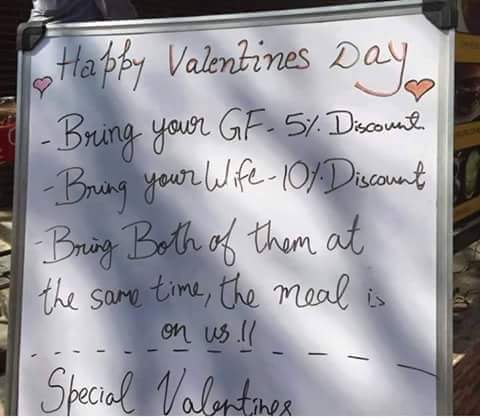 Happy Valentines Day
- Bring your GF - 5% Discount
- Bring your Wife - 10% Discount
- Bring Both of them at
the same time, the meal is
on us !!
Special Valentines